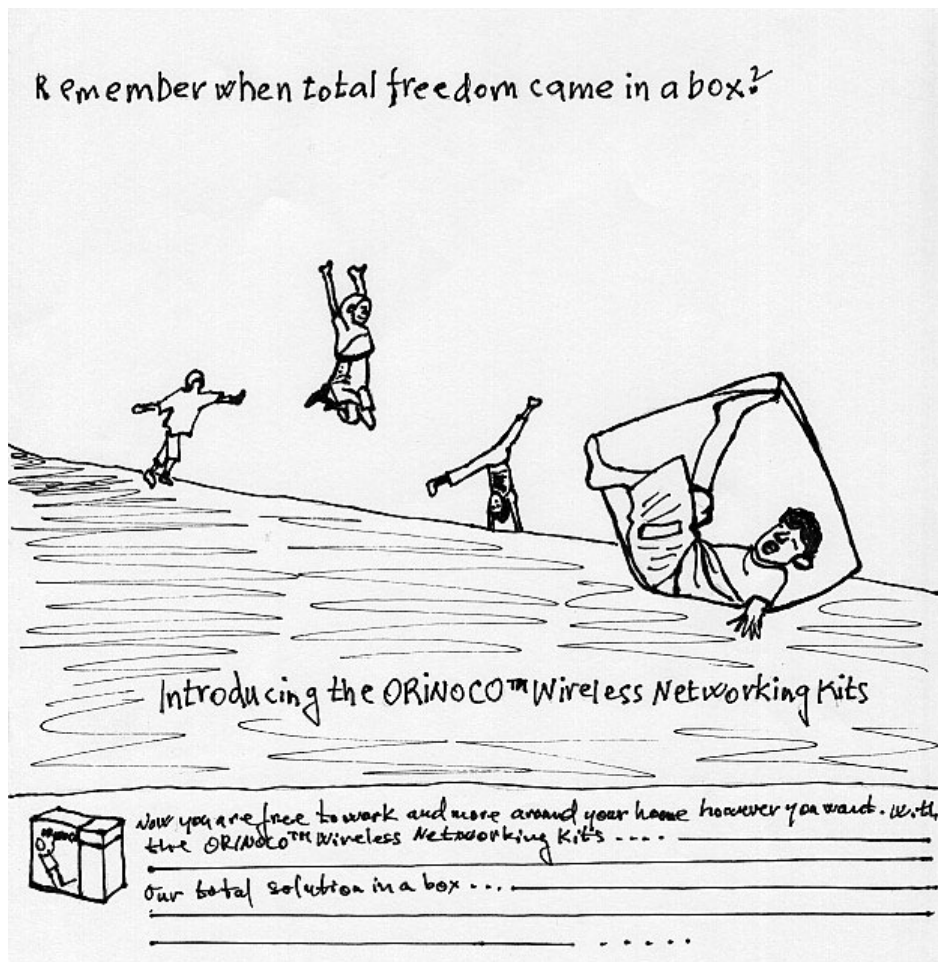 Remember when total freedom came in a box?
Introducing the ORiNOCO™ Wireless Networking Kits
Now you are free to work and more around your home however you want. With
the ORiNOCO™ Wireless Networking Kits ....
Our total solution in a box ...
ORiNOCO